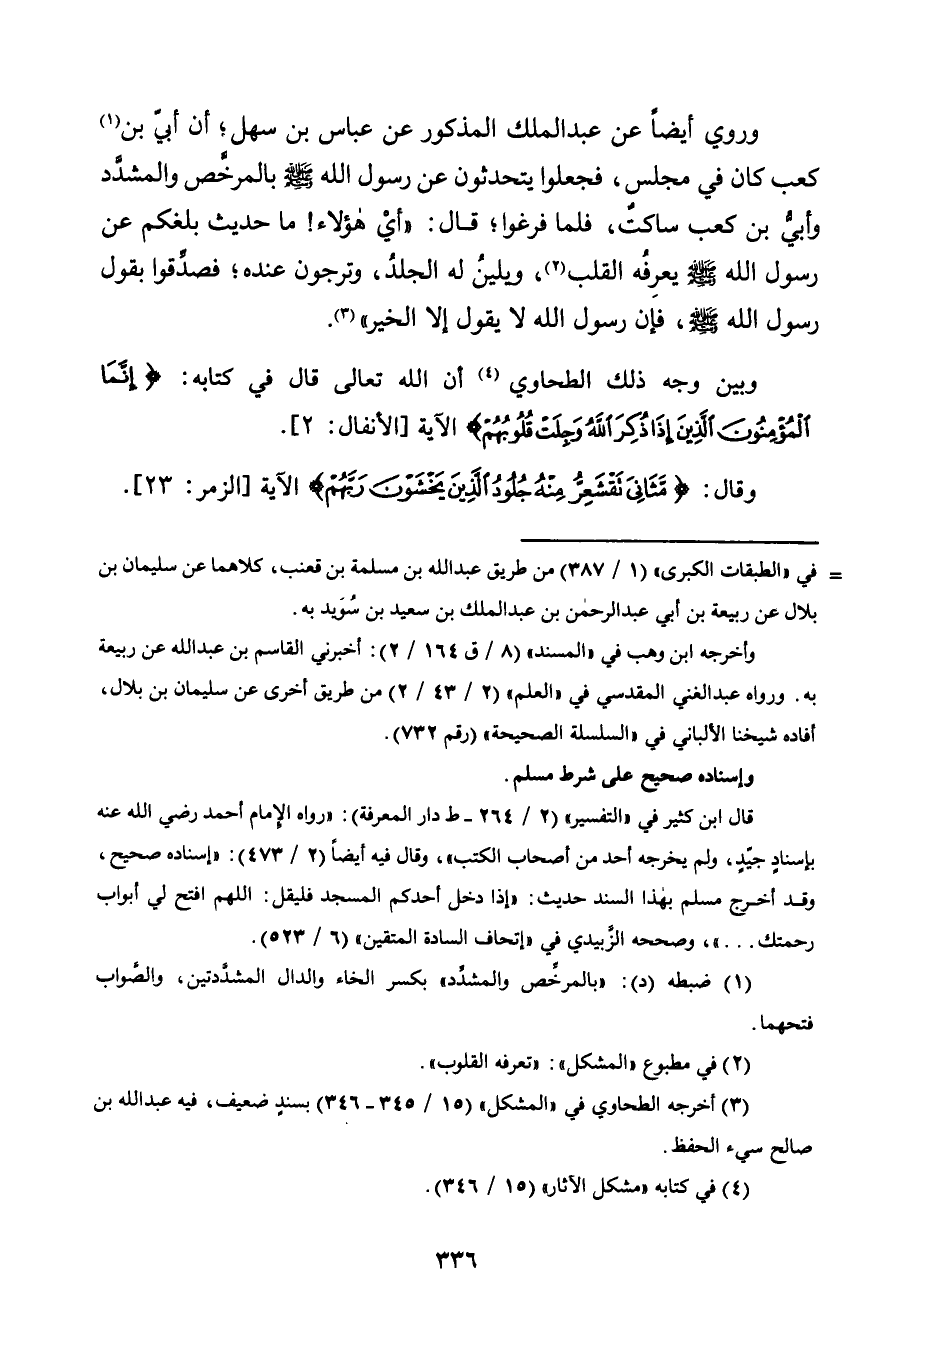 وروي أيضاً عن عبدالملك المذكور عن عباس بن سهل؛ أن أبيّ بن(١)
كعب كان في مجلس، فجعلوا يتحدثون عن رسول الله ﷺ بالمرخَّص والمشدَّد
وأبيُّ بن كعب ساكتٌ، فلما فرغوا؛ قال: «أيْ هٰؤلاء! ما حديث بلغكم عن
رسول الله ﷺ يعرِفُه القلب(٢)، ويلينُ له الجلدُ، وترجون عنده؛ فصدِّقوا بقول
رسول الله ﷺ، فإن رسول الله لا يقول إلا الخير»(٣).
وبين وجه ذلك الطحاوي(٤) أن الله تعالى قال في كتابه: ﴿إِنَّمَا
الْمُؤْمِنُونَ الَّذِينَ إِذَا ذُكِرَ اللَّهُ وَجِلَتْ قُلُوبُهُمْ﴾ الآية [الأنفال: ٢].
وقال: ﴿مَّثَانِيَ تَقْشَعِرُّ مِنْهُ جُلُودُ الَّذِينَ يَخْشَوْنَ رَبَّهُمْ﴾ الآية [الزمر: ٢٣].
= في «الطبقات الكبرى» (١ / ٣٨٧) من طريق عبدالله بن مسلمة بن قعنب، كلاهما عن سليمان بن
بلال عن ربيعة بن أبي عبدالرحمٰن بن عبدالملك بن سعيد بن سُوَيد به.
وأخرجه ابن وهب في «المسند» (٨ / ق ١٦٤ / ٢): أخبرني القاسم بن عبدالله عن ربيعة
به. ورواه عبدالغني المقدسي في «العلم» (٢ / ٤٣ / ٢) من طريق أخرى عن سليمان بن بلال،
أفاده شيخنا الألباني في «السلسلة الصحيحة» (رقم ٧٣٢).
وإسناده صحيح على شرط مسلم.
قال ابن كثير في «التفسير» (٢ / ٢٦٤ ـ ط دار المعرفة): «رواه الإمام أحمد رضي الله عنه
بإسنادٍ جيّدٍ، ولم يخرجه أحد من أصحاب الكتب»، وقال فيه أيضاً (٢ / ٤٧٣): «إسناده صحيح،
وقد أخرج مسلم بهٰذا السند حديث: «إذا دخل أحدكم المسجد فليقل: اللهم افتح لي أبواب
رحمتك...»، وصححه الزَّبيدي في «إتحاف السادة المتقين» (٦ / ٥٢٣).
(١) ضبطه (د): «بالمرخِّص والمشدِّد» بكسر الخاء والدال المشدَّدتين، والصَّواب
فتحهما.
(٢) في مطبوع «المشكل»: «تعرفه القلوب».
(٣) أخرجه الطحاوي في «المشكل» (١٥ / ٣٤٥ ـ ٣٤٦) بسندٍ ضعيف، فيه عبدالله بن
صالح سيء الحفظ.
(٤) في كتابه «مشكل الآثار» (١٥ / ٣٤٦).
٣٣٦